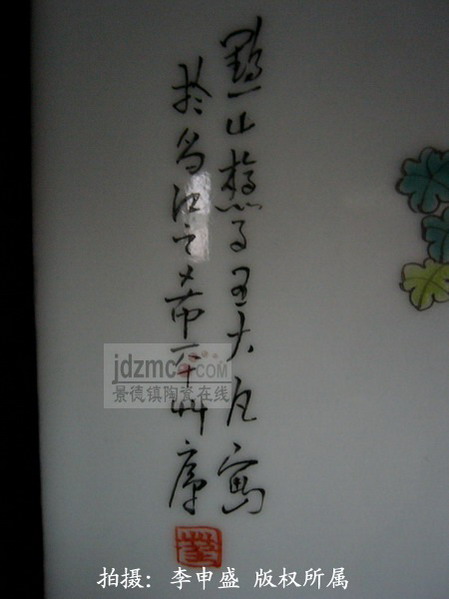 黟山樵子王大凡寫
於昌江之希平艸廬
jdzmc.COM
景德镇陶瓷在线
拍摄：李申盛 版权所属